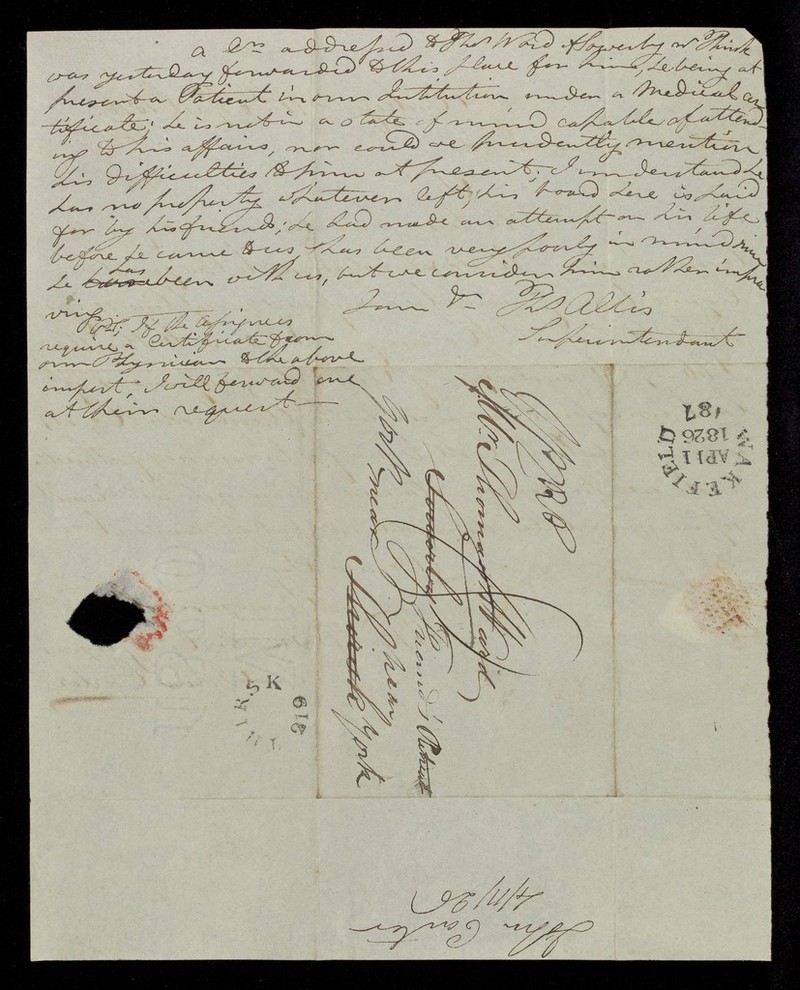 a Lr. addressed to Thos Ward of Sowerby nr Thirsk
was yesterday forwarded to this place for him, he being at
present a Patient in our Institution under a Medical cer
tificate; he is not in a state of mind capable of attend
ing to his affairs, nor could we prudently mention
his difficulties to him at present; I understand he
has no property whatever left; his board here is paid
for by his friends; he had made an attempt on his life
before he came to us, has been very poorly in mind since
he has been with us, but we consider him rather impro
ving
I am &c Thos Allis
Superintendant
PS. If the Assignees
require a Certificate from
our Physician to the above
import, I will forward one
at their request
Mr. Thomas Ward
Sowerby Friends Retreat
near Thirsk near York
York
WAKEFIELD
AP 11
1826
187
THIRSK
219
John Carter
4/11/26